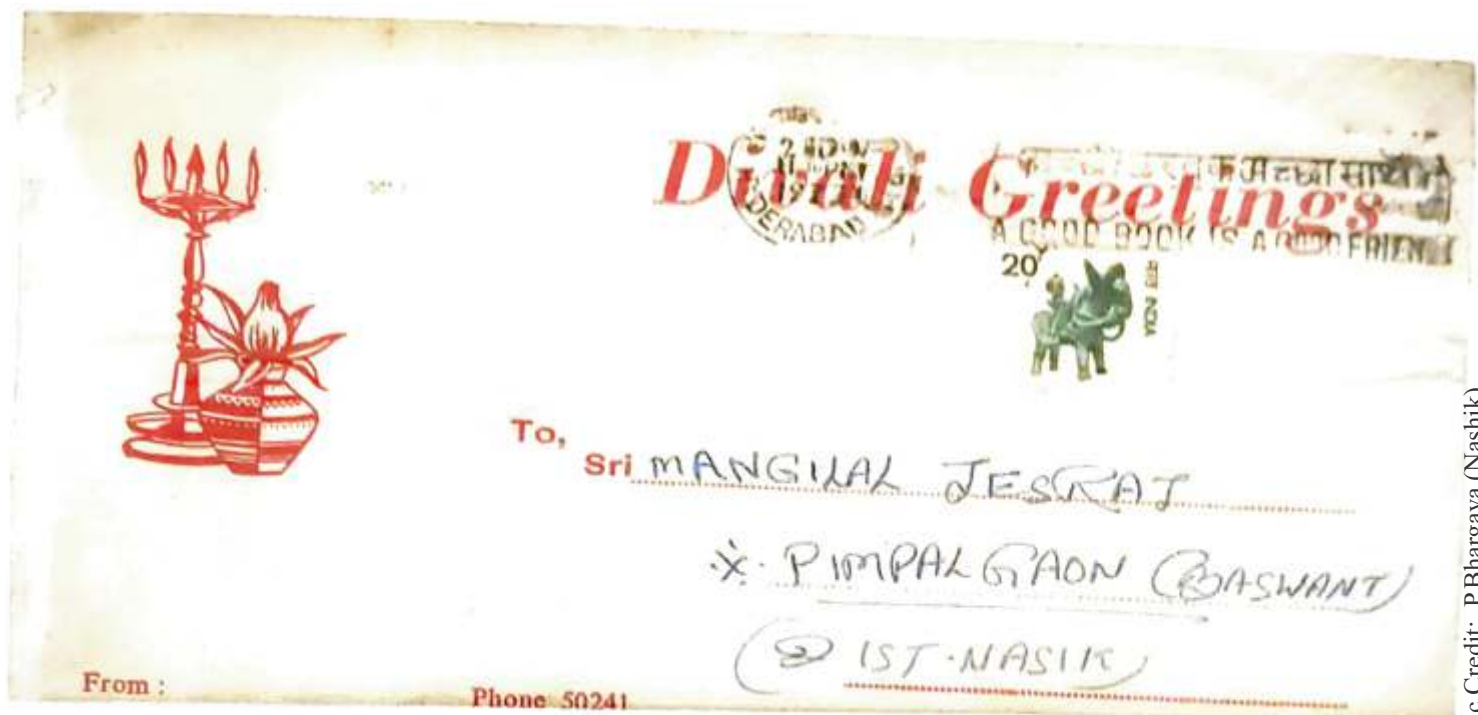 Divali Greetings
HYDERABAD
अच्छा साथी
A GOOD BOOK IS A GOOD FRIEND
20
INDIA
To,
Sri MANGILAL JESRAJ
PIMPALGAON (BASWANT)
(DIST. NASIK)
From :
Phone 50241
c Credit: P.Bhargava (Nashik)